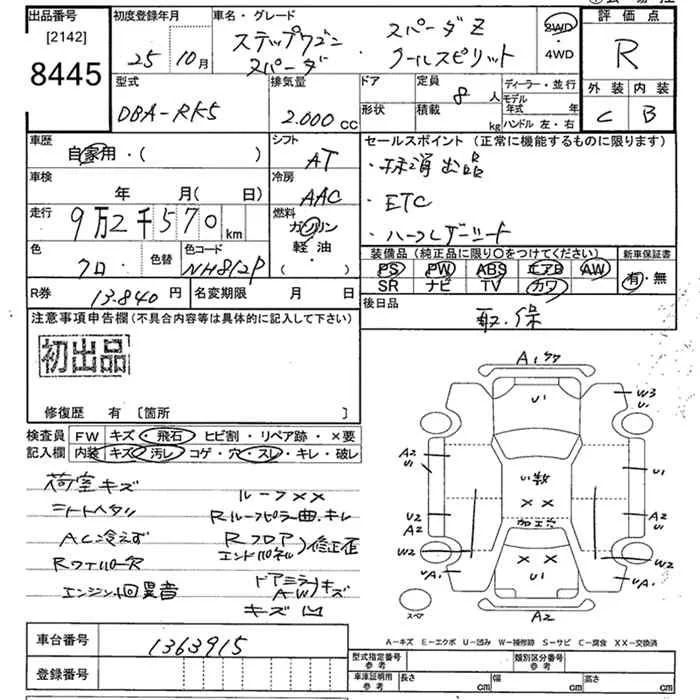 出品番号 初度登録年月 車名・グレード 評価点
[2142]
8445
25 10月
ステップワゴン スパーダZ
スパーダ クールスピリット
2WD
・
4WD
R
外装 内装
C B
型式 排気量 ドア 定員 ディーラー・並行
DBA-RK5 2.000 cc
形状 積載 8人 kg
モデル年式 年
ハンドル 左・右
車歴 シフト セールスポイント (正常に機能するものに限ります)
自家用・( )
AT
・抹消出品
車検 冷房
年 月( 日)
AAC
・ETC
走行 燃料
9万2千570 km
ガソリン
軽油
・( )
・ハーフレザーシート
色 色替 色コード
クロ NH812P
装備品 (純正品に限り○をつけてください) 新車保証書
PS PW ABS エアB AW
SR ナビ TV カワ
有・無
R券 13.840 円 名変期限 月 日
後日品
取.保
注意事項申告欄(不具合内容等は具体的に記入して下さい)
初出品
修復歴 有 [箇所 ]
検査員 FW キズ・飛石・ヒビ割・リペア跡・×要
記入欄 内装 キズ・汚レ・コゲ・穴・スレ・キレ・破レ
荷室キズ
シートヘタリ
AC冷えず
RワイパーR
エンジン回異音
ルーフ××
Rルーフピラー曲.キレ
Rフロア
エンドパネル
修正歪
ドアミラーキズ
AWキズ
キズ凹
A1 ケケ
U1
W3
U1
A2
U1
U1
U2
A2
U1
W2
W2
A1
A1
U1
A2
スペア
A-キズ E-エクボ U-凹み W-補修跡 S-サビ C-腐食 XX-交換済
車台番号 1363915
登録番号
型式指定番号 参考
類別区分番号 参考
車庫証明用 参考
長さ cm 幅 cm 高さ cm